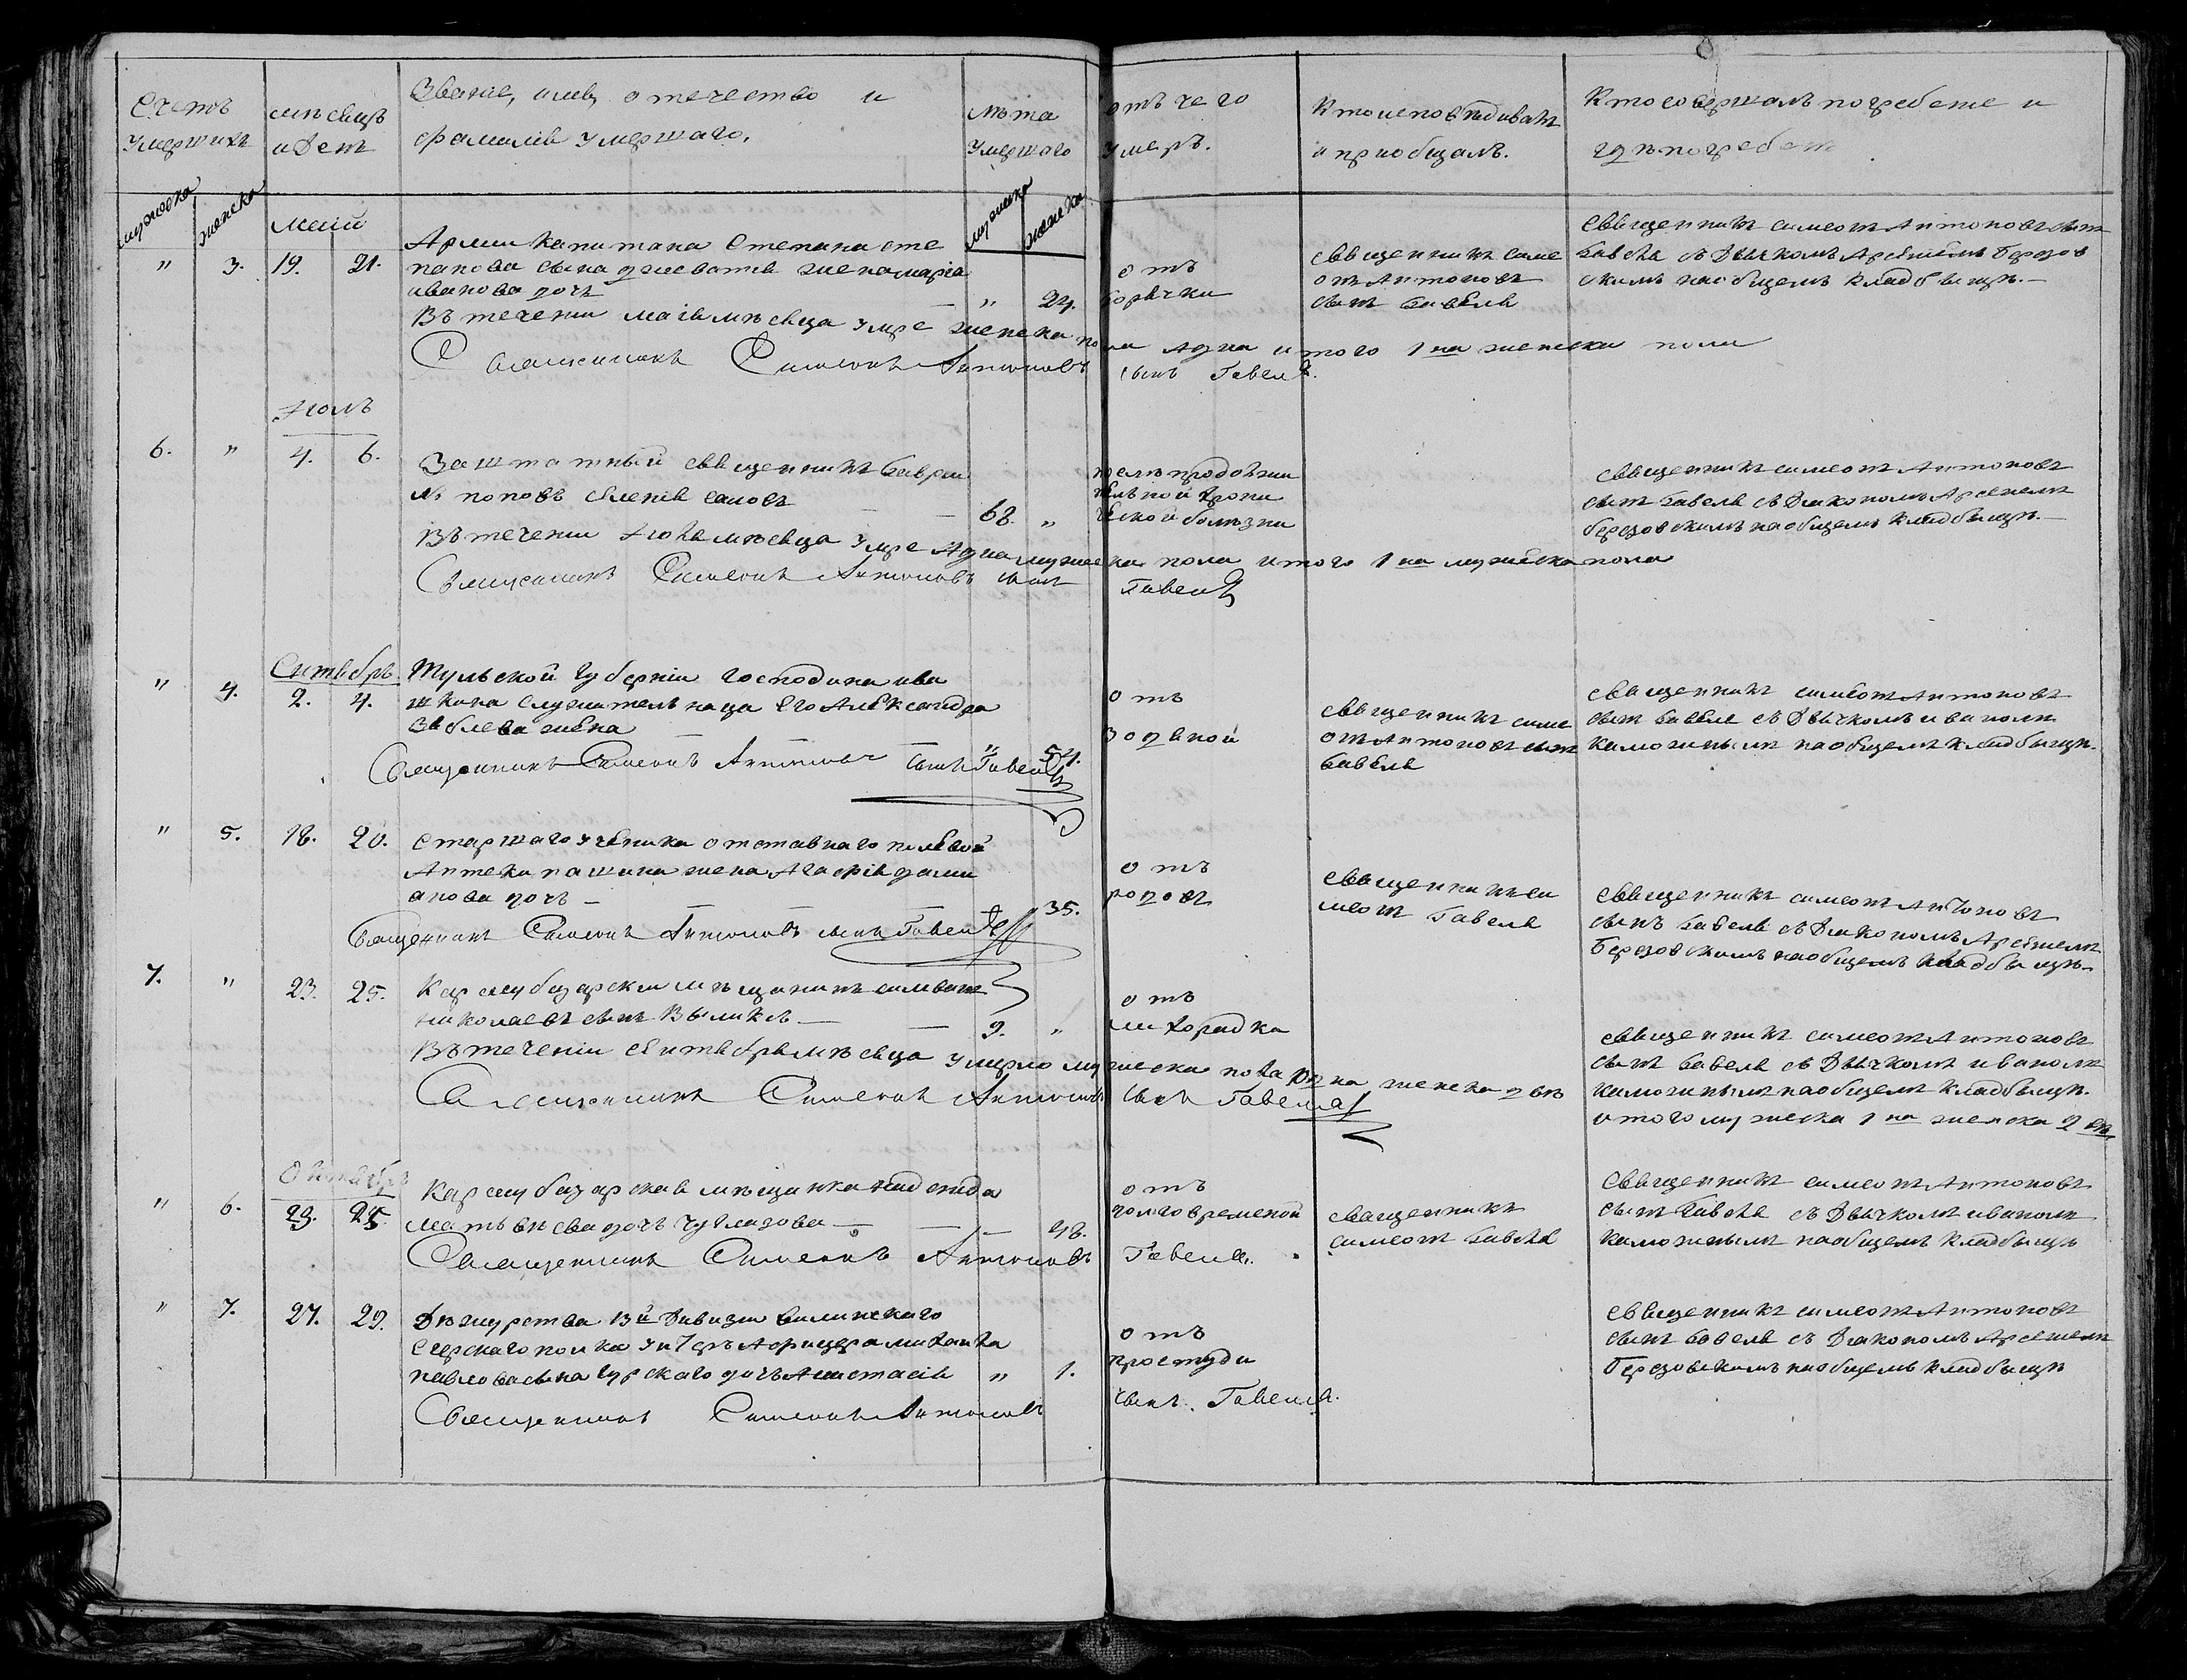 Счетъ умершихъ
мѣсяцъ и день
Званіе, имя, отечество и
фамилія умершаго.
Лѣта умершаго
отъ чего умеръ.
Кто исповѣдивалъ
и пріобщалъ.
Кто совершалъ погребеніе и
гдѣ погребенъ
мужеска
женска
мужеска
женска
маій
" 3. 19. 21.
Арміи капитана Степана сте
панова сына жена марія
иванова дочь — " 24.
отъ
горячки
священникъ симе
онъ Антоновъ
сынъ Гавеля
священникъ симеонъ Антоновъ сынъ
Гавеля съ Дьячкомъ Арсеніемъ Березов
скимъ на общемъ кладбыщѣ.—
Въ теченіи маія мѣсяца умре женска пола адна итого 1 на женска пола
Священникъ Симеонъ Антоновъ сынъ Гавеля.
Іюль
6. " 4. 6.
Заштатный священникъ Гаврии
лъ поповъ — — 68. "
продолжи
тельной хрони
ческой болѣзни
священникъ симеонъ Антоновъ
сынъ Гавеля съ Діякономъ Арсеніемъ
березовскимъ на общемъ кладбыщѣ.—
Въ теченіи Іюля мѣсяца умре Адна мужеска пола итого 1 на мужеска пола
Священникъ Симеонъ Антоновъ сынъ Гавеля
Сентябрь
" 4. 2. 4.
Тульской Губерніи господина ива
шкина служительница Его Александра
Зяблева жена — — " 54.
отъ
водяной
священникъ симе
онъ Антоновъ сынъ
Гавеля
священникъ симеонъ Антоновъ
сынъ Гавеля съ Дьячкомъ иваномъ
на общемъ кладбыщѣ.
Священникъ Симеонъ Антоновъ сынъ Гавеля
" 5. 18. 20.
Старшаго ученика отставнаго полевой
Аптеки пашина жена Агафія деми
анова дочь — — — 35.
отъ
родовъ
священникъ си
меонъ Гавеля
священникъ симеонъ Антоновъ
сынъ Гавеля съ Діякономъ Арсеніемъ
Березовскимъ на общемъ кладбыщѣ.
Священникъ Симеонъ Антоновъ сынъ Гавеля
7. " 23. 25.
Карасубазарскій мѣщанинъ
николаевъ сынъ — — 9. "
отъ
лихорадка
священникъ симеонъ Антоновъ
сынъ Гавеля съ Дьячкомъ иваномъ
на общемъ кладбыщѣ.
Въ теченіи сентября мѣсяца умерло мужеска пола адна женска двѣ
итого мужеска 1 на женска 2 вѣ
Священникъ Симеонъ Антоновъ сынъ Гавеля
Октябрь
" 6. 23. 25.
Карасубазарская мѣщанка надежда
матвѣева дочь — — 48.
отъ
священникъ
симеонъ Гавеля
священникъ симеонъ Антоновъ
сынъ Гавеля съ Дьячкомъ иваномъ
на общемъ кладбыщѣ
Священникъ Симеонъ Антоновъ Гавеля.
" 7. 27. 29.
Дѣжурства 13й Дивизіи виленскаго
Егерскаго полка унтеръ Афицера михаила
павлова сына дочь Анастасія " 1.
отъ
простуди
священникъ симеонъ Антоновъ
сынъ Гавеля съ Діякономъ Арсеніемъ
Березовскимъ на общемъ кладбыщѣ
Священникъ Симеонъ Антоновъ сынъ Гавеля.